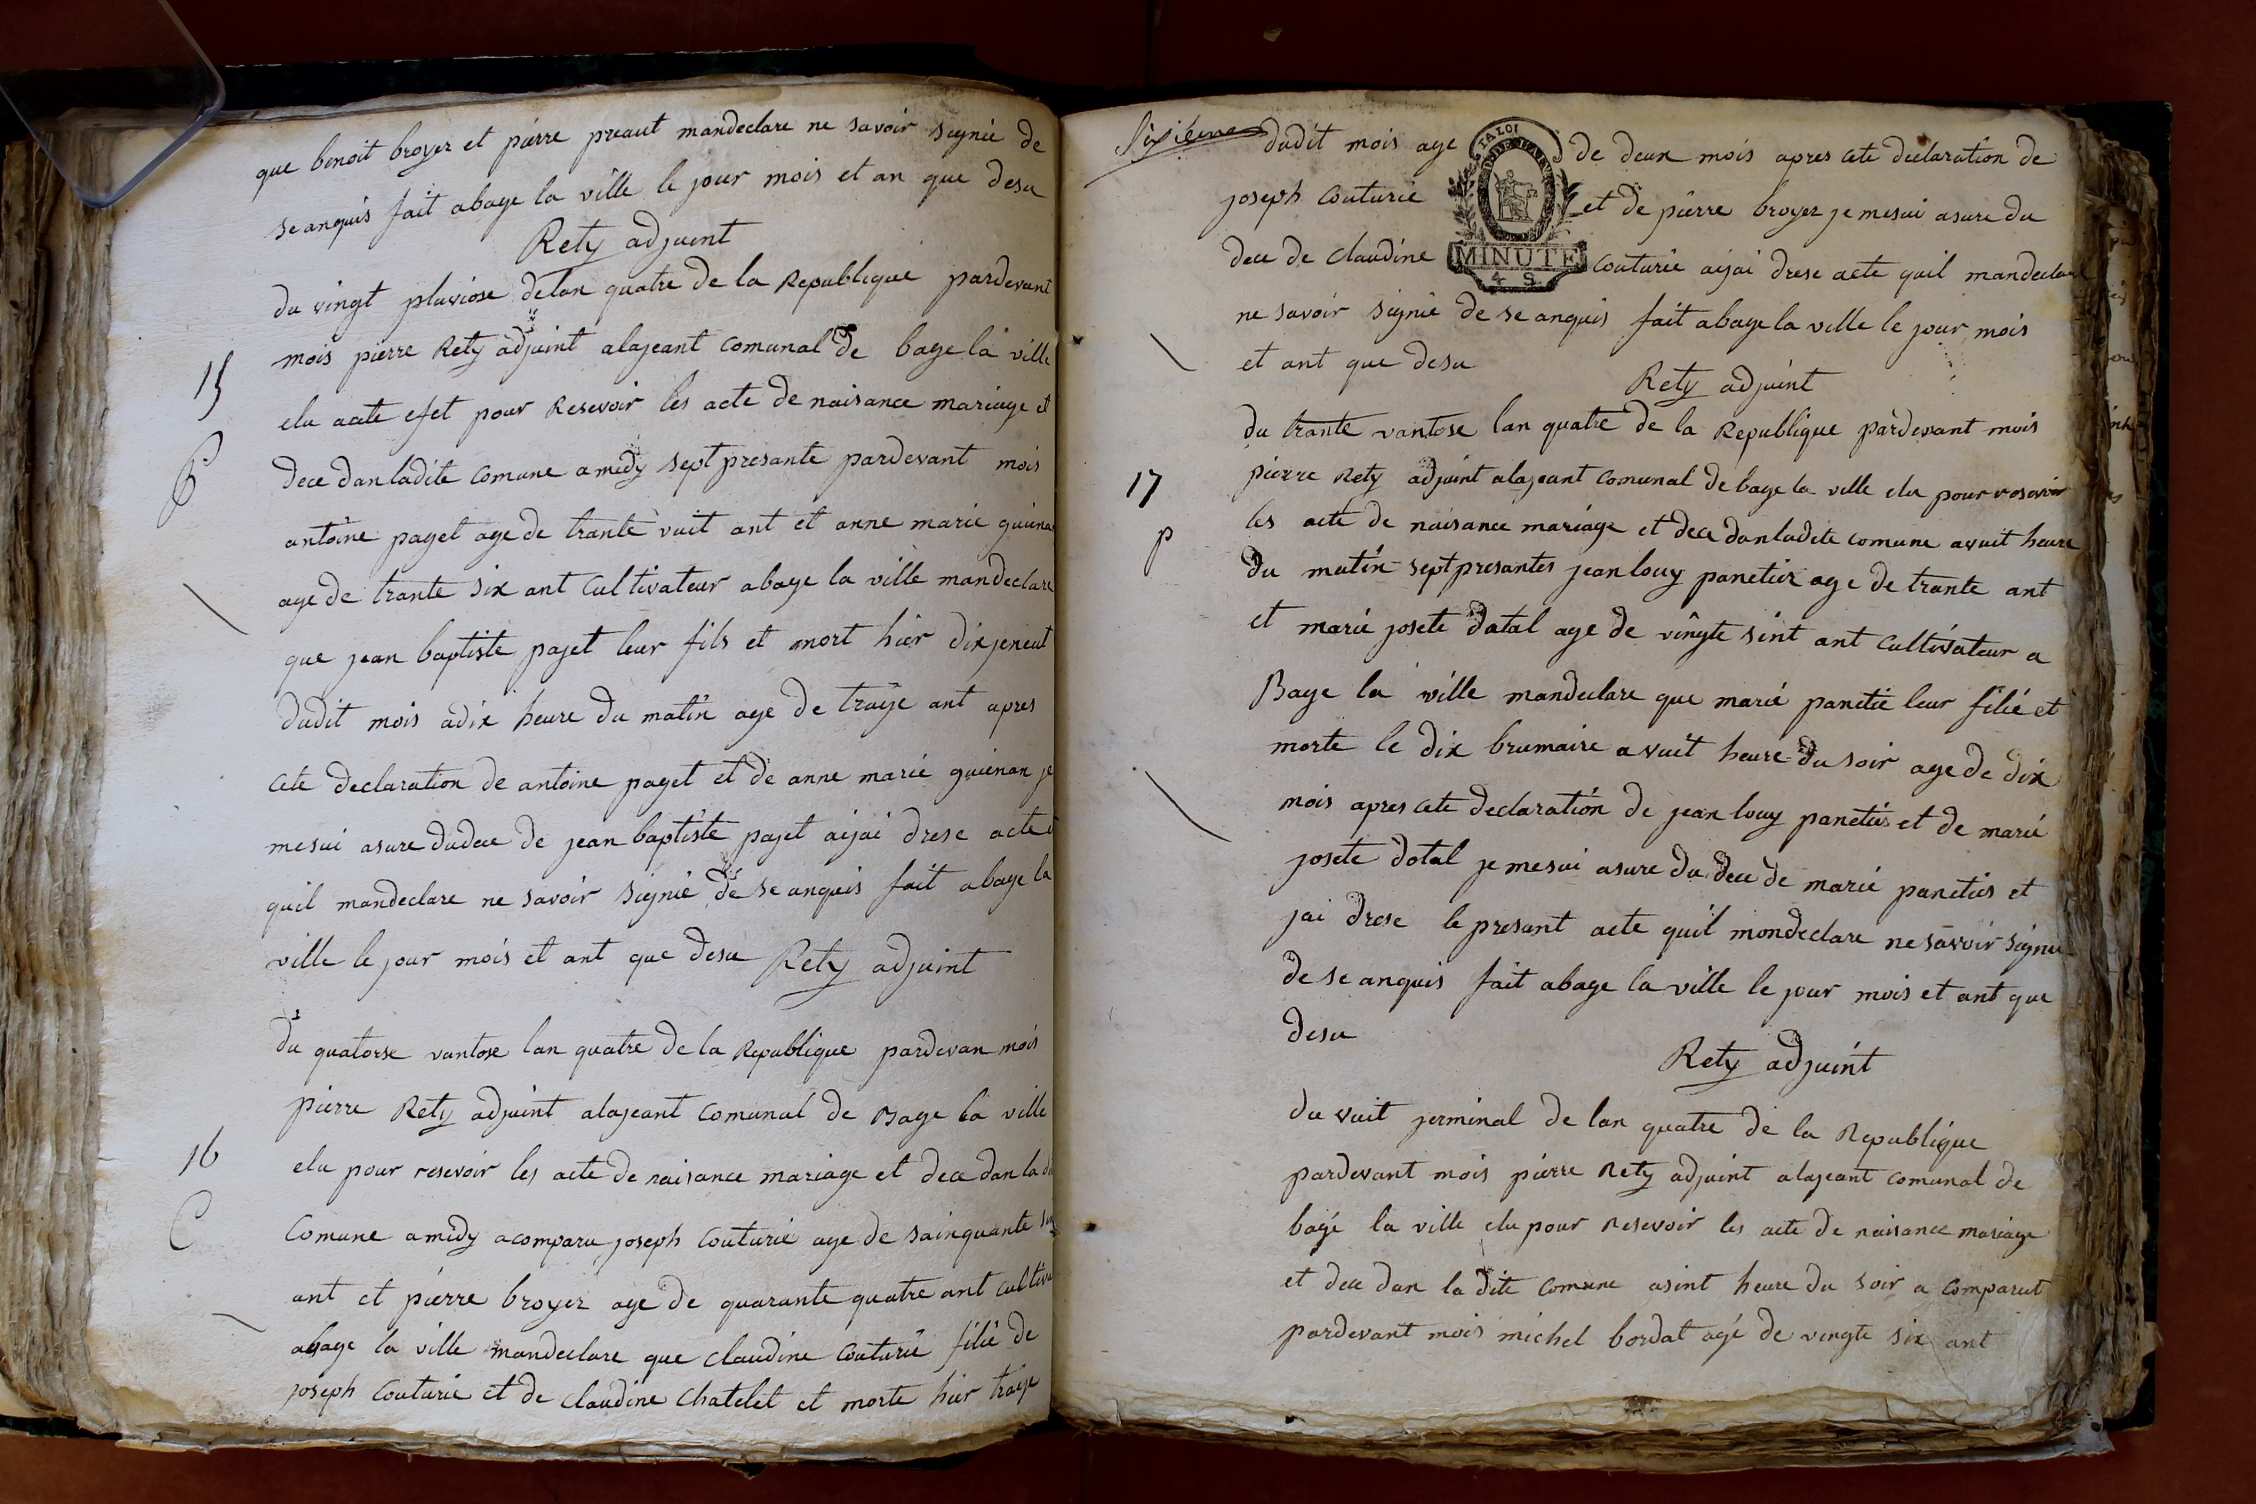 que benoit broyer et pierre preaut mandeclare ne savoir signié de
se anquis fait abage la ville le jour mois et an que desu
Rety adjuent
du vingt pluviose delan quatre de la Republique pardevant
mois pierre Rety adjuint alajeant comunal de bage la ville
15
elu acete efet pour Resevoir les acte de naisance mariage et
P
dece danladite comune amidy sept presante pardevant mois
antoine paget age de trante vuit ant et anne marie guienan
age de trante six ant cultivateur abage la ville mandeclare
que jean baptiste pajet leur fils et mort hier dixjeneut
dudit mois adix heure du matin age de traije ant apres
cete declaration de antoine paget et de anne marie guienan je
mesui asure dudece de jean baptiste pajet aijai drese acte
quil mandeclare ne savoir signié de se anquis fait abage la
ville le jour mois et ant que desu Rety adjuint
du quatorse vantose lan quatre de la Republique pardevan mois
pierre Rety adjuint alajeant comunal de Bage la ville
16
elu pour resevoir les acte de naisance mariage et dece dan la di
C
comune amidy acomparu joseph couturie age de sainquante
ant et pierre broyer age de quarante quatre ant cultiva
abage la ville mandeclare que claudine couturie filie de
joseph couturie et de claudine chatelet et morte hier traije
Sixieme dudit mois age de deux mois apres cete declaration de
LA LOI
joseph couturie et de pierre broyer je mesui asure du
dece de claudine couturie aijai drese acte quil mandeclare
MINUTE
4 S.
ne savoir signié de se anquis fait abage la ville le jour mois
et ant que desu
Rety adjuint
du trante vantose lan quatre de la Republique pardevant mois
17
pierre Rety adjuint alajeant comunal de bage la ville elu pour resevoir
les acte de naisance mariage et dece danladite comune avuit heure
p
du matin sept presantes jean louy panetier age de trante ant
et marie josete datal age de vingte sint ant cultivateur a
Bage la ville mandeclare que marie panetie leur filie et
morte le dix brumaire avuit heure du soir age de dix
mois apres cete declaration de jean louy panetier et de marie
josete dotal je mesui asure du dece de marie panetier et
jai drese le presant acte quil mondeclare ne savoir signie
de se anquis fait abage la ville le jour mois et ant que
desu
Rety adjuint
du vuit jerminal de lan quatre de la Republique
pardevant mois pierre Rety adjuint alajeant comunal de
bagé la ville elu pour Resevoir les acte de naisance mariage
et dece dan la dite comune asint heure du soir a comparut
pardevant mois michel bordat agé de vingte six ant